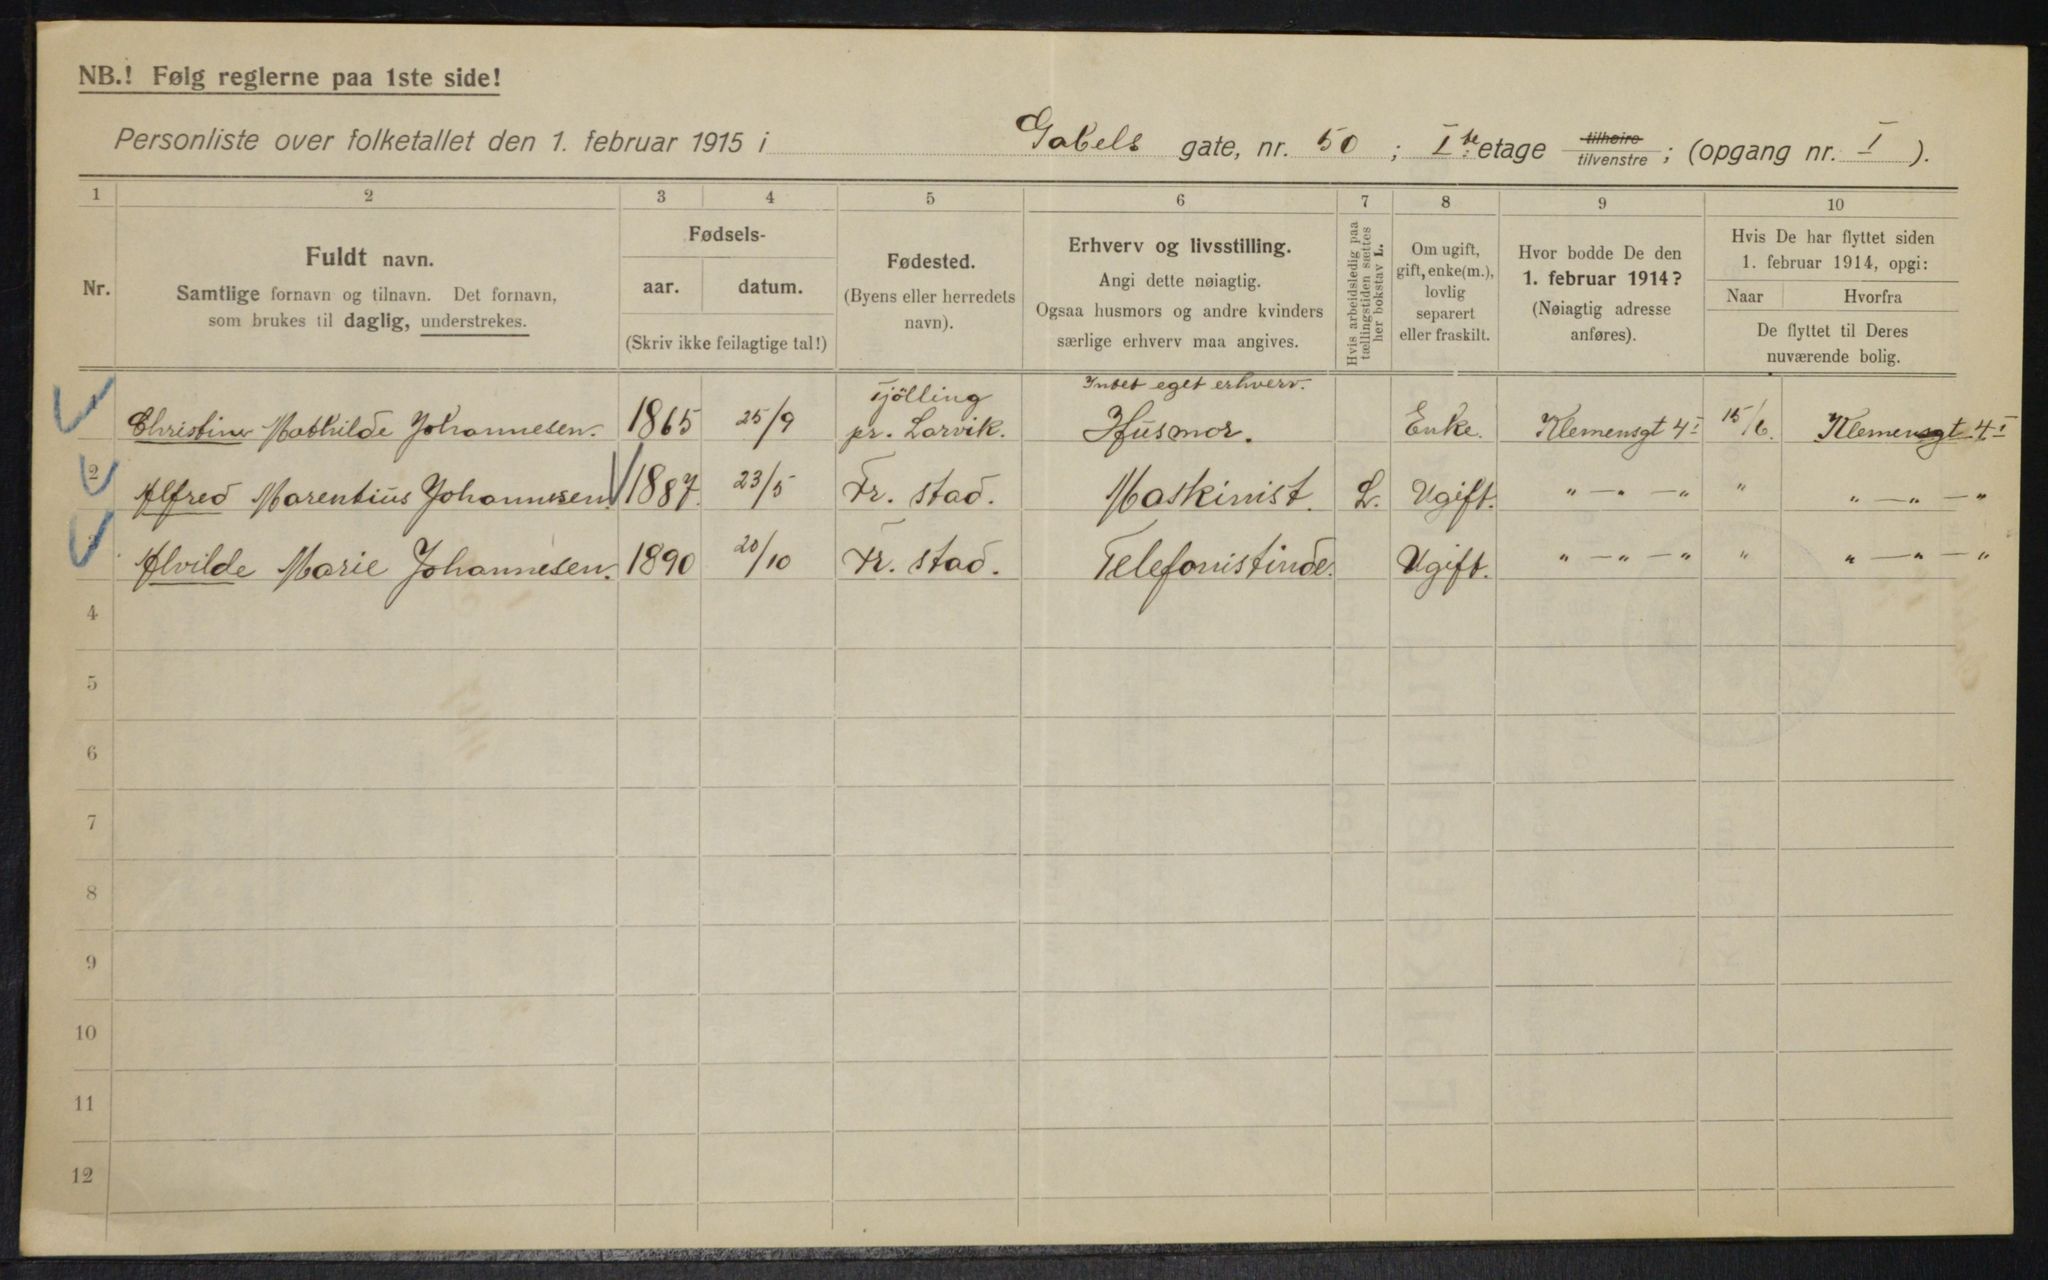 NB.! Følg reglerne paa 1ste side!
Personliste over folketallet den 1. februar 1915 i Gabels gate, nr. 50 ; I ste etage tilhøire tilvenstre ; (opgang nr. I ).
1 2 3 4 5 6 7 8 9 10
Nr.
Fuldt navn.
Samtlige fornavn og tilnavn. Det fornavn,
som brukes til daglig, understrekes.
Fødsels-
aar. datum.
(Skriv ikke feilagtige tal!)
Fødested.
(Byens eller herredets
navn).
Erhverv og livsstilling.
Angi dette nøiagtig.
Ogsaa husmors og andre kvinders
særlige erhverv maa angives.
Hvis arbeidsledig paa
tællingstiden sættes
her bokstav L.
Om ugift,
gift, enke(m.),
lovlig
separert
eller fraskilt.
Hvor bodde De den
1. februar 1914?
(Nøiagtig adresse
anføres).
Hvis De har flyttet siden
1. februar 1914, opgi:
Naar Hvorfra
De flyttet til Deres
nuværende bolig.
Tjölling Intet eget erhverv.
Christine Mathilde Johannesen. 1865 25/9 pr. Larvik. Husmor. Enke. Klemensgt 4 I 15/6. Klemensgt 4 I
2 Alfred Marentius Johannesen. 1887. 23/5 Fr. stad. Maskinist. L. Ugift. " — " — " " " — " — "
Alvilde Marie Johannesen. 1890 20/10 Fr. stad. Telefonistinde. Ugift. " — " — " " " — " — "
4
5
6
7
8
9
10
11
12